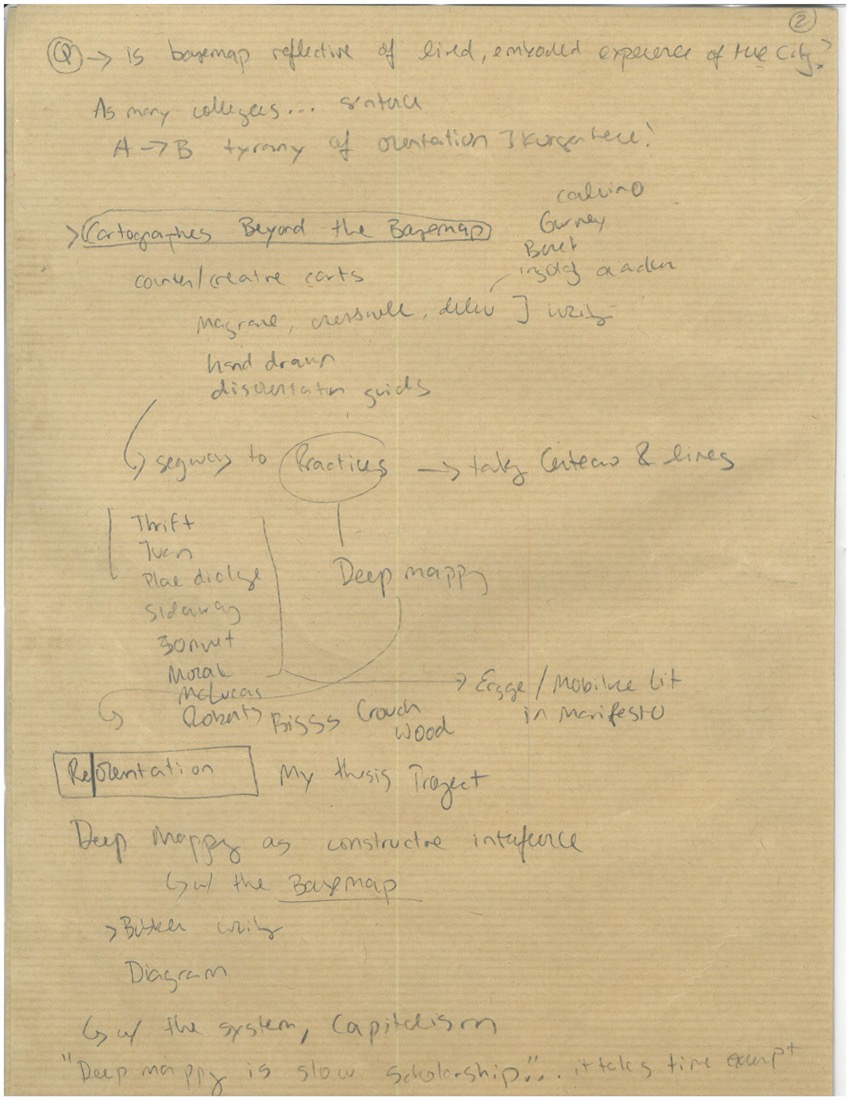 2
Q → is basemap reflective of lived, embodied experience of the City?
As many collegees... sentence
A → B tyranny of orientation ] Kurgan here!
calvino
Gurney
> Cartographies Beyond the Basemap
counter/creative carts
Magrane, cresswell, ] writing
hand drawn
disorientation guides
segway to Practices → taking Certeau & lines
Thrift
Tuan
Place dialogue
Sidaway
Bonnet
McLucas
Roberts Biggs Crouch
Wood
Deep mapping
→ / Mobilize Lit
in Manifesto
Re/orientation My thesis Project
Deep Mapping as constructive interference
↳ w/ the Basemap
> writing
Diagram
↳ w/ the system, Capitalism
"Deep mapping is slow scholarship"... it takes time excerpt